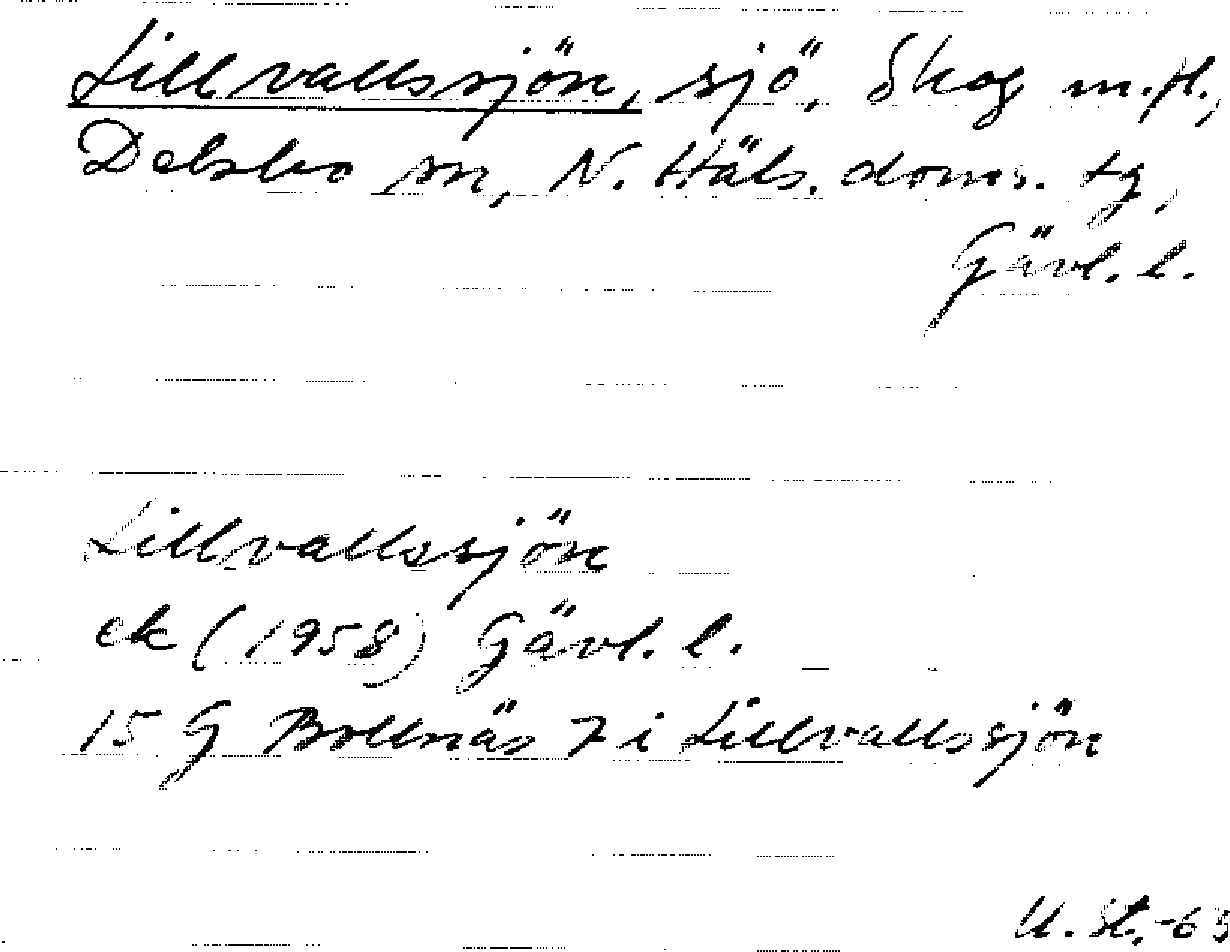 Lillvallssjön, sjö, Skog m.fl.,
Delsbo sn, N. Häls. doms. tg,
Gävl. l.
Lillvallssjön
ek (1958) Gävl. l.
15 G Bollnäs 7 i Lillvallssjön
U. St. -63